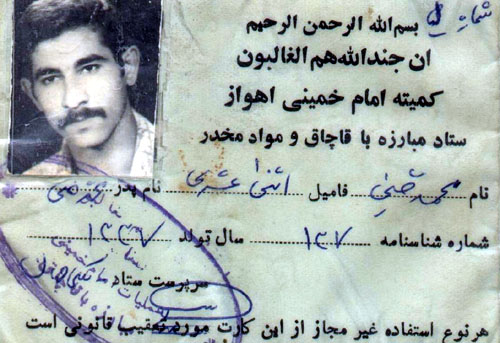 شماره
بسم الله الرحمن الرحیم
ان جندالله هم الغالبون
کمیته امام خمینی اهواز
ستاد مبارزه با قاچاق و مواد مخدر
نام محمد فامیل اثنی عشری نام پدر
شماره شناسنامه ۱۳۷ سال تولد ۱۳۳۷
سرپرست ستاد
هرنوع استفاده غیر مجاز از این کارت مورد تعقیب قانونی است